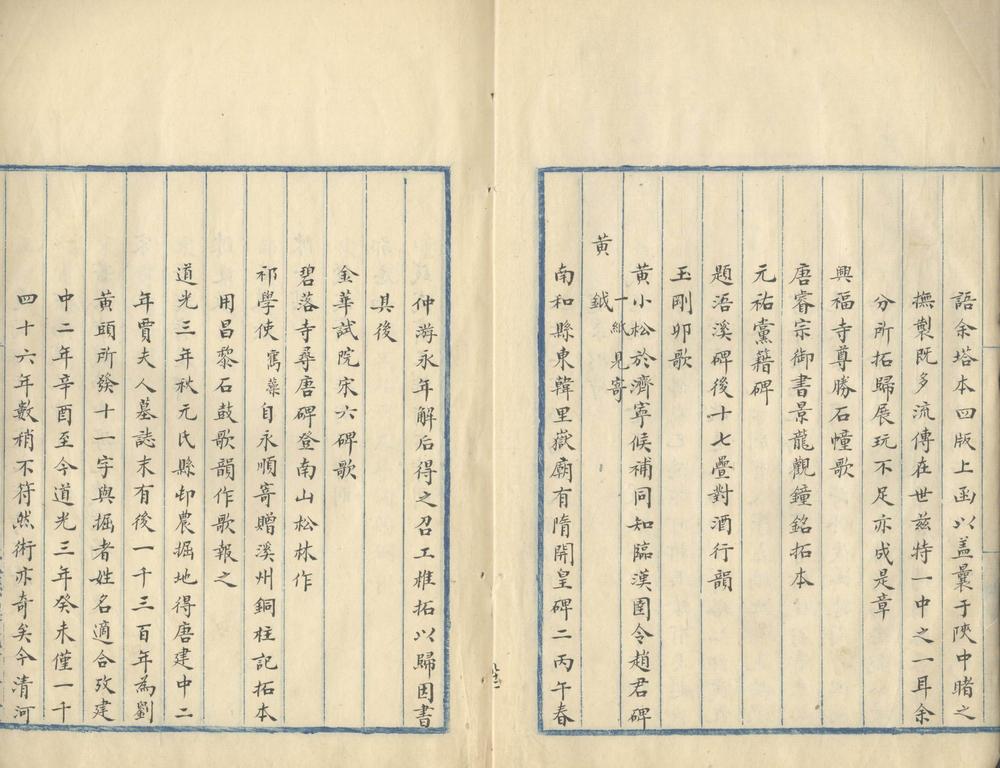 語余塔本四版上函以蓋彙于陝中睹之
橅製旣多流傳在世茲特一中之一耳余
分所拓歸展玩不足亦成是章
興福寺尊勝石幢歌
唐睿宗御書景龍觀鐘銘拓本
元祐黨籍碑
題浯溪碑後十七疊對酒行韻
玉剛卯歌
黃小松於濟寧候補同知臨漢圉令趙君碑
一紙見寄
黃 鉞
南和縣東韓里嶽廟有隋開皇碑二丙午春
仲游永年解后得之召工椎拓以歸因書
其後
金華試院宋六碑歌
碧落寺尋唐碑登南山松林作
祁學使寯藻自永順寄贈溪州銅柱記拓本
用昌黎石鼓歌韻作歌報之
道光三年秋元氏縣邨農掘地得唐建中二
年賈夫人墓誌末有後一千三百年為劉
黃頭所發十一字與掘者姓名適合攷建
中二年辛酉至今道光三年癸未僅一千
四十六年數稍不符然術亦奇矣今清河